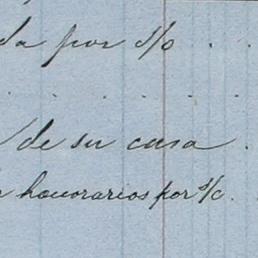 da por s/o . .
. . . . . .
de su casa .
honorarios por s/c.